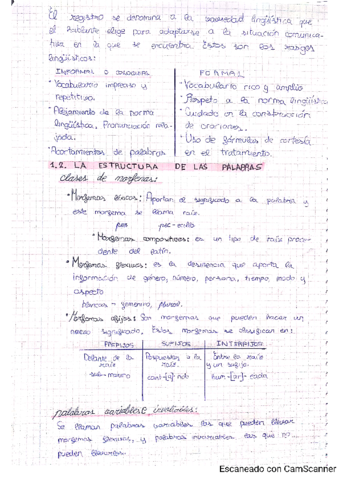 El registro se denomina a la variedad lingüística que
el hablante elige para adaptarse a la situación comunica-
tiva en la que se encuentra. Estos son los rasgos
lingüísticos:
INFORMAL O COLOQUIAL
· Vocabulario impreciso y
repetitivo.
· Alejamiento de la norma
lingüística, Pronunciación rela-
jada.
· Acortamientos de palabras
FORMAL
· Vocabulario rico y amplio
· Respeto a la norma lingüística
· Cuidado en la construcción
de oraciones.
· Uso de fórmulas de cortesía
en el tratamiento.
1.2. LA ESTRUCTURA DE LAS PALABRAS
clases de morfemas:
· Morfemas léxicos: Aportan el significado a la palabra y
este morfema se llama raíz.
pez pec-ecillo
· Morfemas compositivos: es un tipo de raíz proce-
dente del latín.
· Morfemas flexivos: es la desinencia que aporta la
información de género, número, persona, tiempo modo y
aspecto
blancas - femenino, plural.
· Morfemas afijos: Son morfemas que pueden hacer un
nuevo significado. Estos morfemas se clasifican en:
PREFIJOS
Delante de la
raíz
sub-marino
SUFIJOS
Pospuestos a la
raíz.
INTERFIJOS
Entre la raíz
y un sufijo.
palabras variables e invariables:
Se llaman palabras variables las que pueden llevar
morfemas flexivos, y palabras invariables las que no
pueden llevarlos.
Escaneado con CamScanner